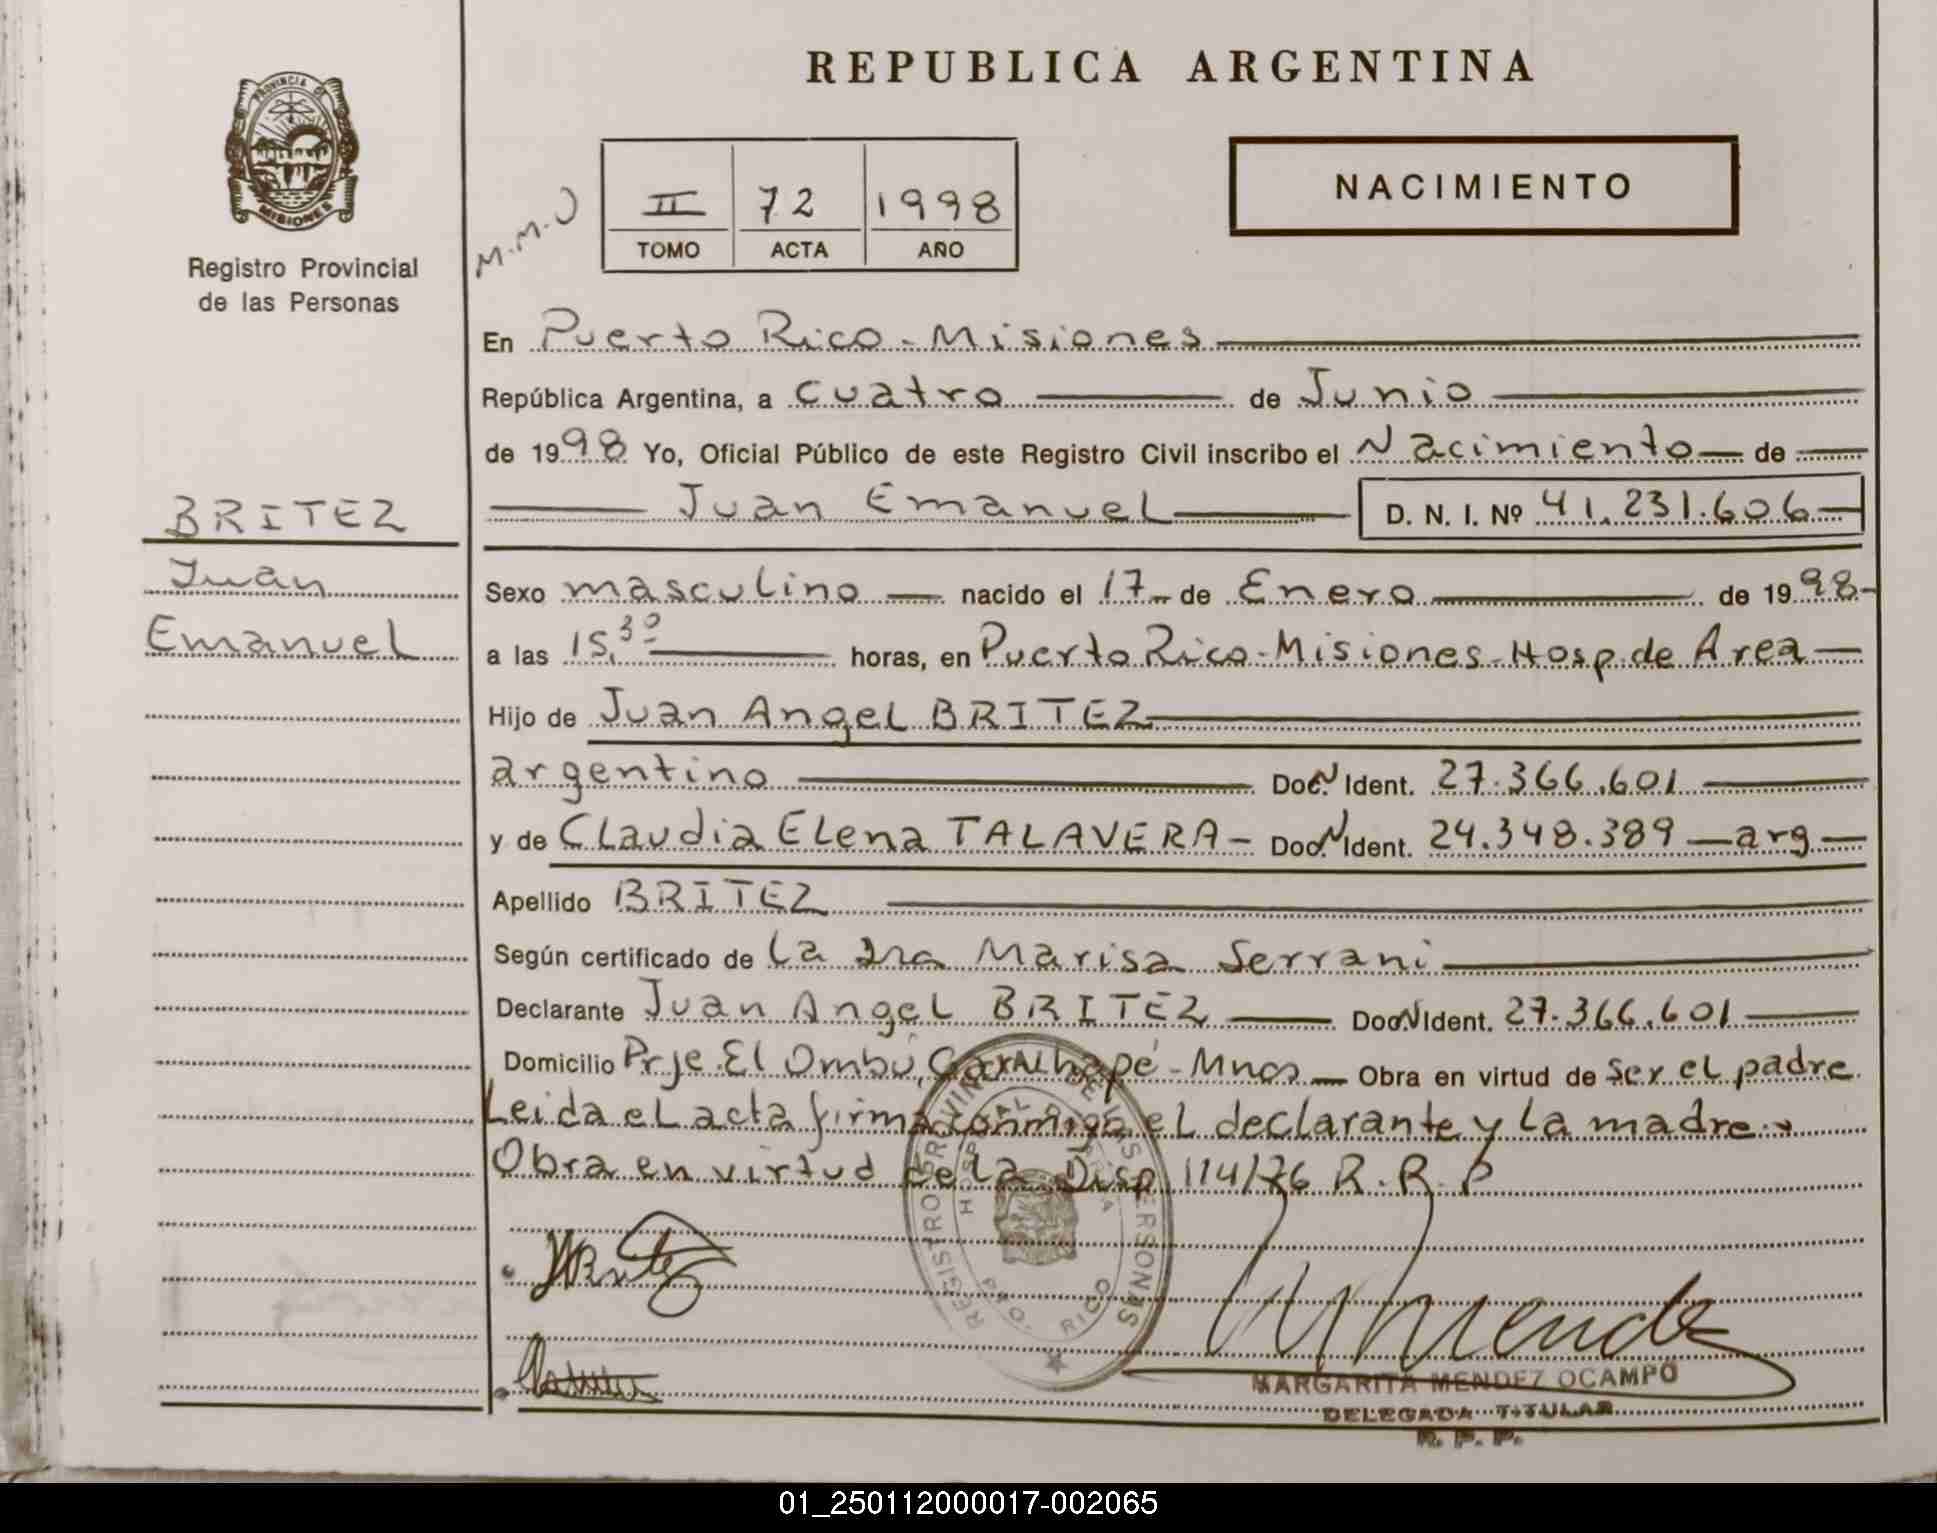 REPUBLICA ARGENTINA
PROVINCIA DE
MISIONES
Registro Provincial
de las Personas
NACIMIENTO
M.M.O
II 72 1998
TOMO ACTA AÑO
En Puerto Rico - Misiones
República Argentina, a cuatro de Junio
de 1998 Yo, Oficial Público de este Registro Civil inscribo el Nacimiento de
Juan Emanuel D. N. I. Nº 41.231.606
BRITEZ
Juan
Emanuel
Sexo masculino nacido el 17 de Enero de 1998
a las 15,30 horas, en Puerto Rico - Misiones - Hosp. de Area
Hijo de Juan Angel BRITEZ
argentino Doc. N Ident. 27.366.601
y de Claudia Elena TALAVERA - Doc. N Ident. 24.348.389 - arg
Apellido BRITEZ
Según certificado de La Dra Marisa Serrani
Declarante Juan Angel BRITEZ Doc N Ident. 27.366.601
Domicilio Prje. El Ombú, Garuhapé - Mnes Obra en virtud de ser el padre
Leida el acta firma conmigo el declarante y la madre.
Obra en virtud de la Disp 114/76 R.R.P
REGISTRO PROVINCIAL DE LAS PERSONAS
PTO. RICO
MARGARITA MENDEZ OCAMPO
DELEGADA TITULAR
R. P. P.
01_250112000017-002065